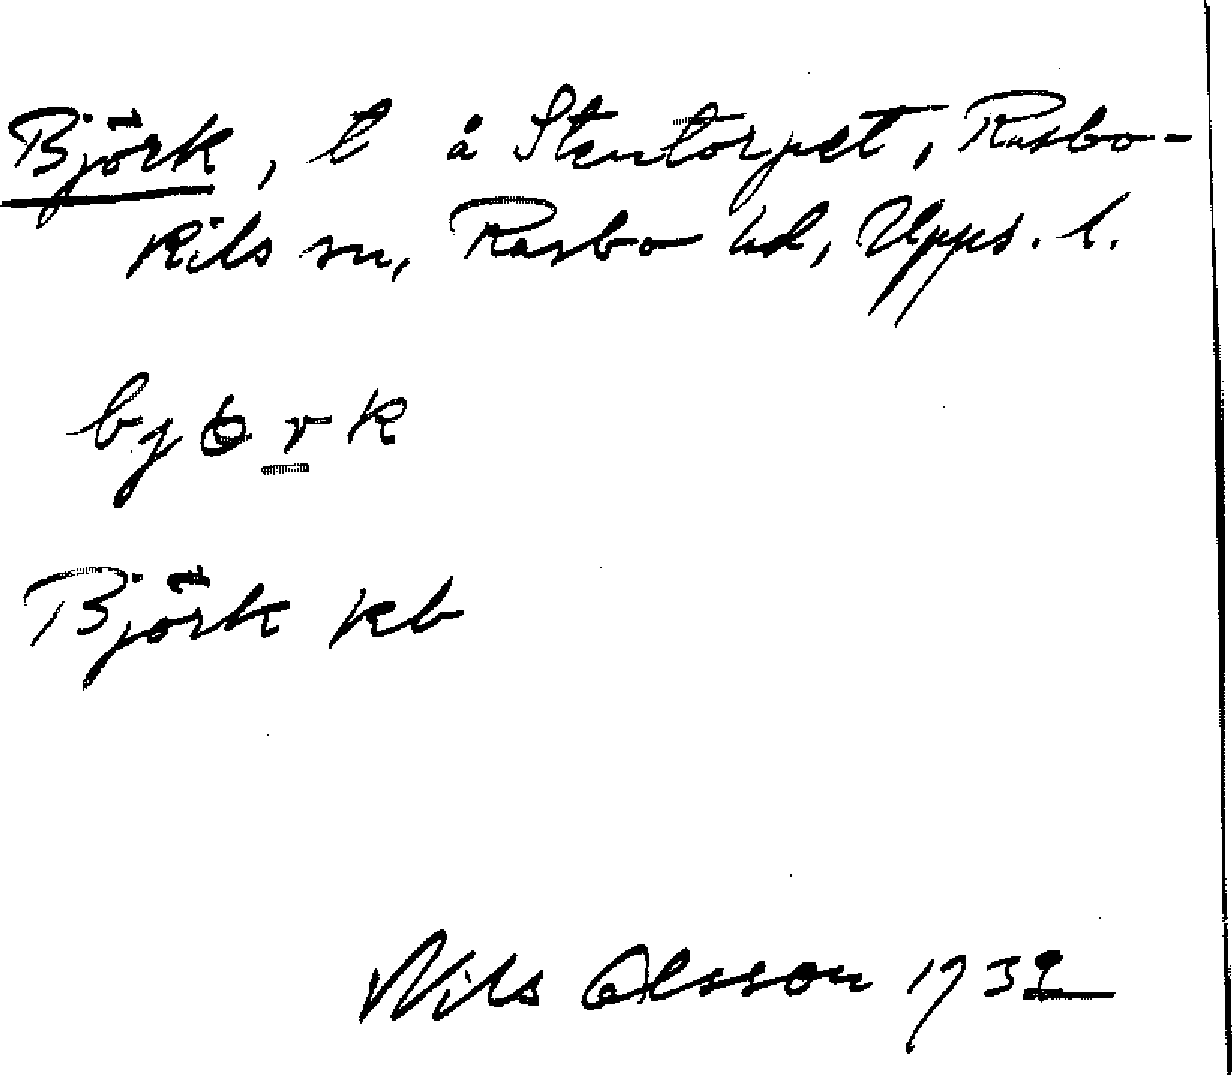 Björk, t å Stentorpet, Rasbo-
Kils sn, Rasbo hd, Upps. l.
björk
Björk kb
Nils Olsson 1932